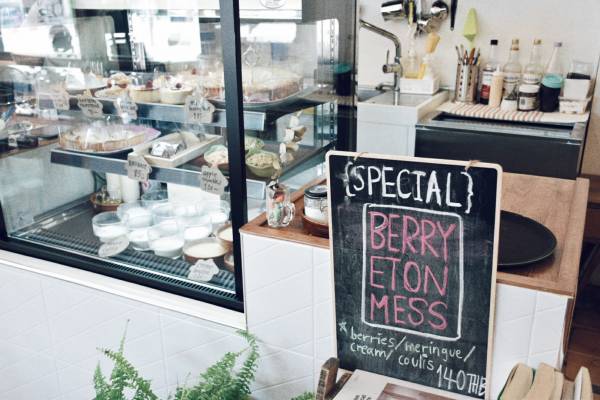 {SPECIAL}
BERRY
ETON
MESS
* berries/meringue/
cream/coulis
140THB